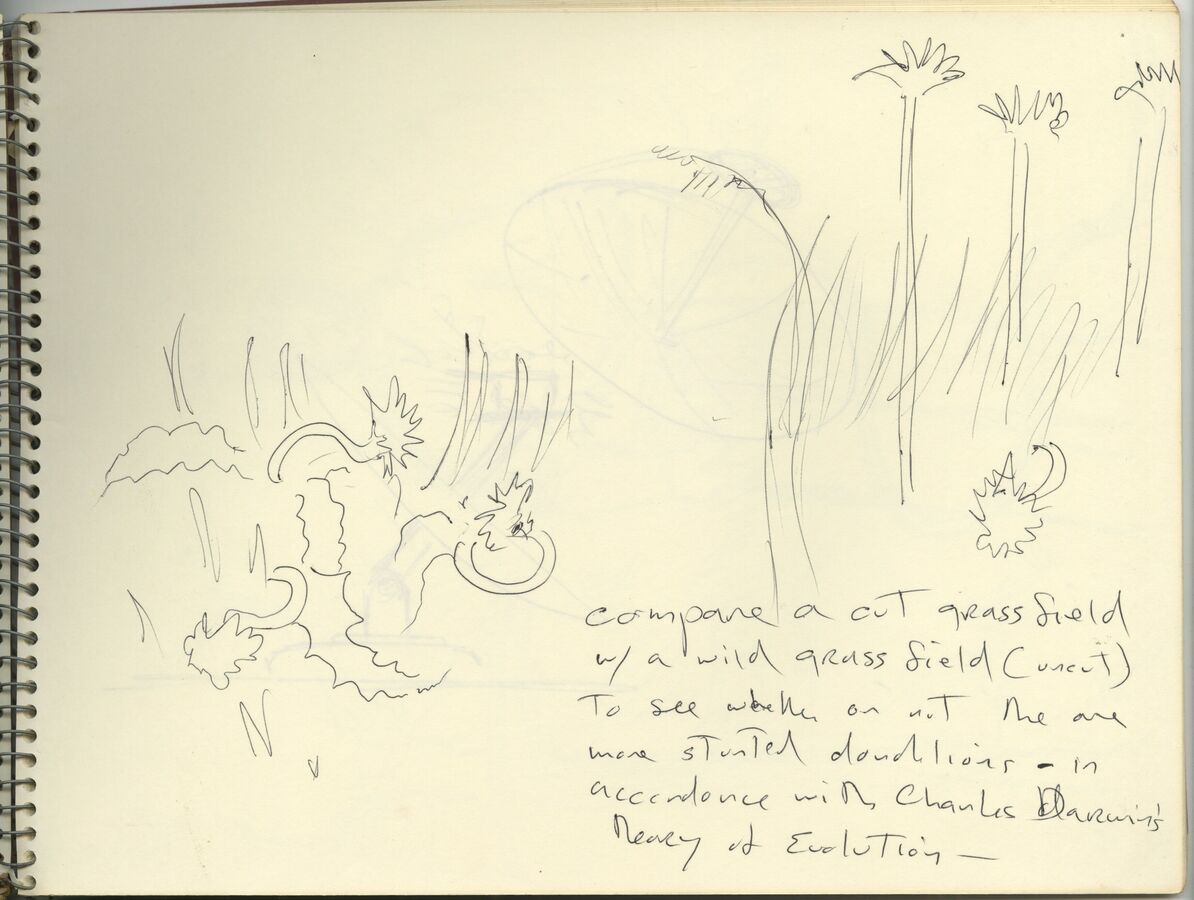 compare a cut grass field
w/ a wild grass field (uncut)
To see whether or not the are
more stunted dandilions - in
accordance with Charles Darwin's
Theory of Evolution —